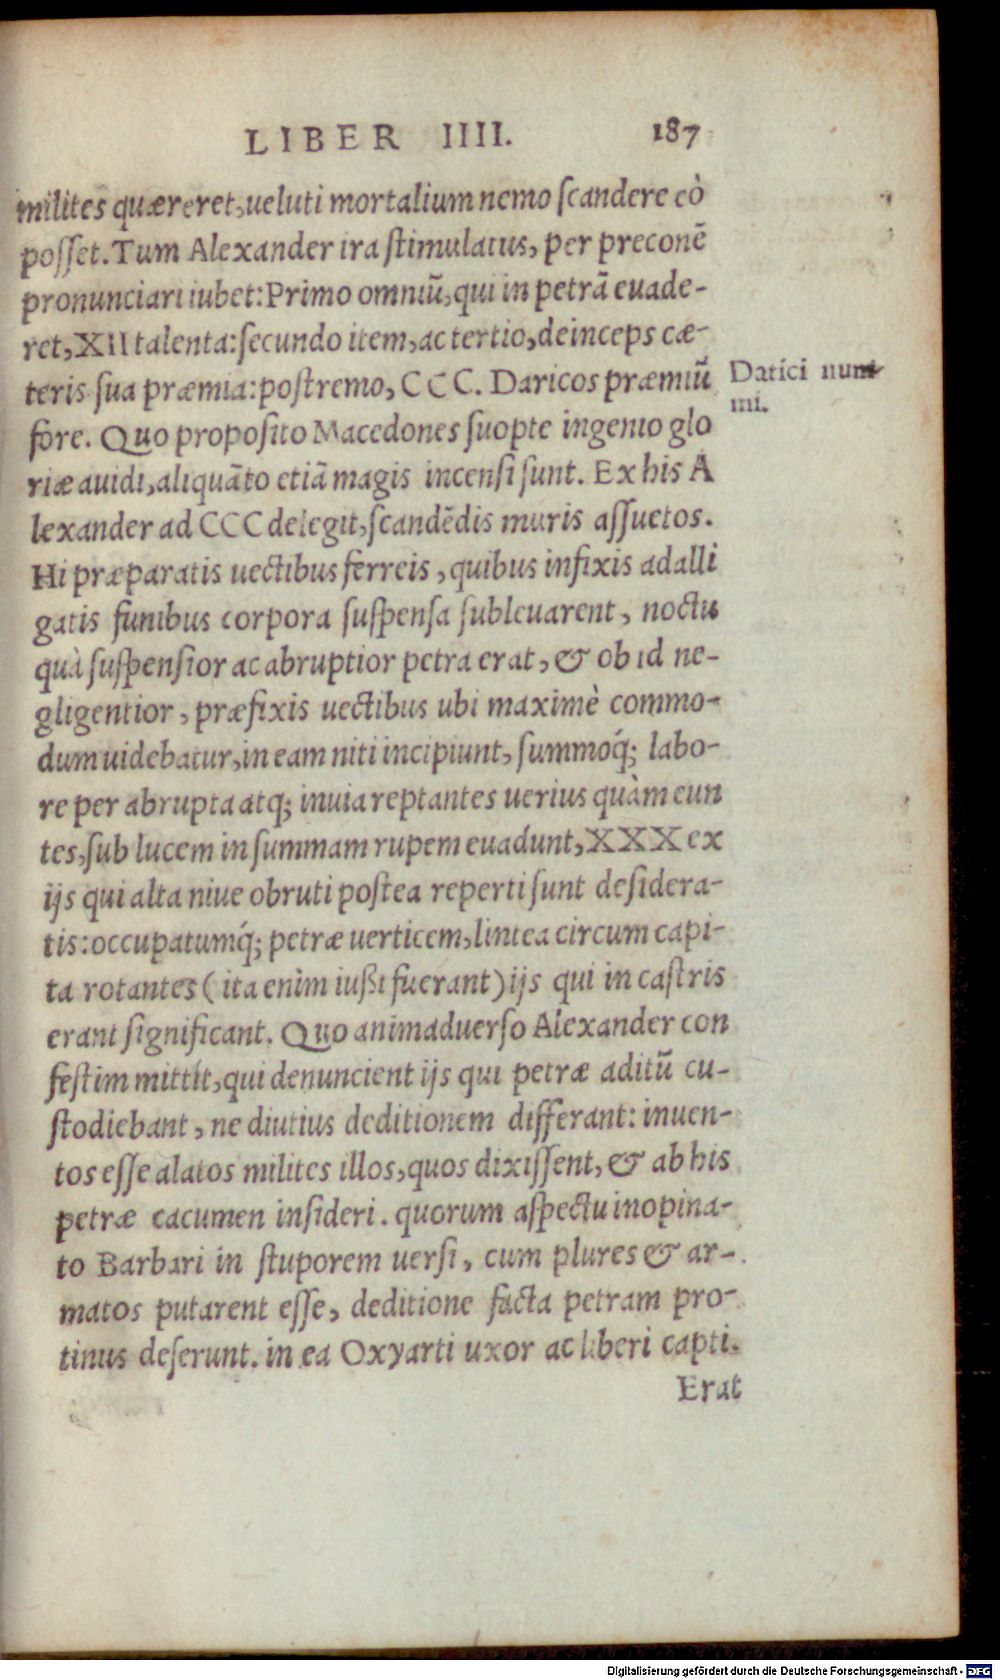 LIBER IIII. 187
milites quæreret, ueluti mortalium nemo scandere eò
posset. Tum Alexander ira stimulatus, per preconẽ
pronunciari iubet: Primo omniũ, qui in petrã euade-
ret, XII talenta: secundo item, ac tertio, deinceps cæ-
teris sua præmia: postremo, CCC. Daricos præmiũ
Darici num
mi.
fore. Quo proposito Macedones suopte ingenio glo
riæ auidi, aliquãto etiã magis incensi sunt. Ex his A
lexander ad CCC delegit, scandẽdis muris assuetos.
Hi præparatis uectibus ferreis, quibus infixis ad alli
gatis funibus corpora suspensa subleuarent, noctu
quà suspensior ac abruptior petra erat, & ob id ne-
gligentior, præfixis uectibus ubi maximè commo-
dum uidebatur, in eam niti incipiunt, summoq́; labo-
re per abrupta atq; inuia reptantes uerius quàm eun
tes, sub lucem in summam rupem euadunt, XXX ex
ijs qui alta niue obruti postea reperti sunt desidera-
tis: occupatumq́; petræ uerticem, lintea circum capi-
ta rotantes (ita enim iußi fuerant) ijs qui in castris
erant significant. Quo animaduerso Alexander con
festim mittit, qui denuncient ijs qui petræ aditũ cu-
stodiebant, ne diutius deditionem differant: inuen-
tos esse alatos milites illos, quos dixissent, & ab his
petræ cacumen insideri. quorum aspectu inopina-
to Barbari in stuporem uersi, cum plures & ar-
matos putarent esse, deditione facta petram pro-
tinus deserunt. in ea Oxyarti uxor ac liberi capti.
Erat
Digitalisierung gefördert durch die Deutsche Forschungsgemeinschaft - DFG